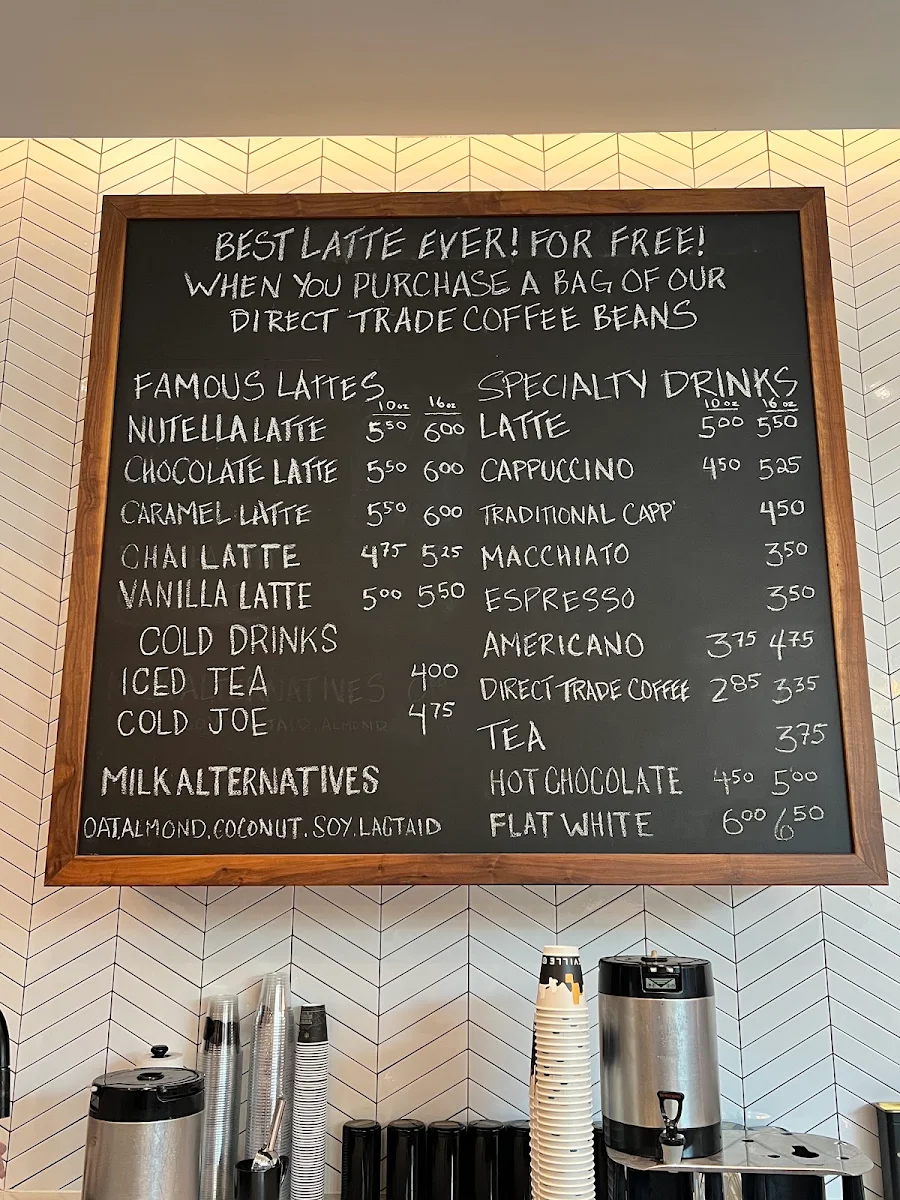 BEST LATTE EVER! FOR FREE!
WHEN YOU PURCHASE A BAG OF OUR
DIRECT TRADE COFFEE BEANS
FAMOUS LATTES
10oz 16oz
NUTELLA LATTE 5.50 6.00
CHOCOLATE LATTE 5.50 6.00
CARAMEL LATTE 5.50 6.00
CHAI LATTE 4.75 5.25
VANILLA LATTE 5.00 5.50
COLD DRINKS
ICED TEA 4.00
COLD JOE 4.75
MILK ALTERNATIVES
OAT, ALMOND, COCONUT. SOY. LACTAID
SPECIALTY DRINKS
10oz 16oz
LATTE 5.00 5.50
CAPPUCCINO 4.50 5.25
TRADITIONAL CAPP' 4.50
MACCHIATO 3.50
ESPRESSO 3.50
AMERICANO 3.75 4.75
DIRECT TRADE COFFEE 2.85 3.35
TEA 3.75
HOT CHOCOLATE 4.50 5.00
FLAT WHITE 6.00 6.50